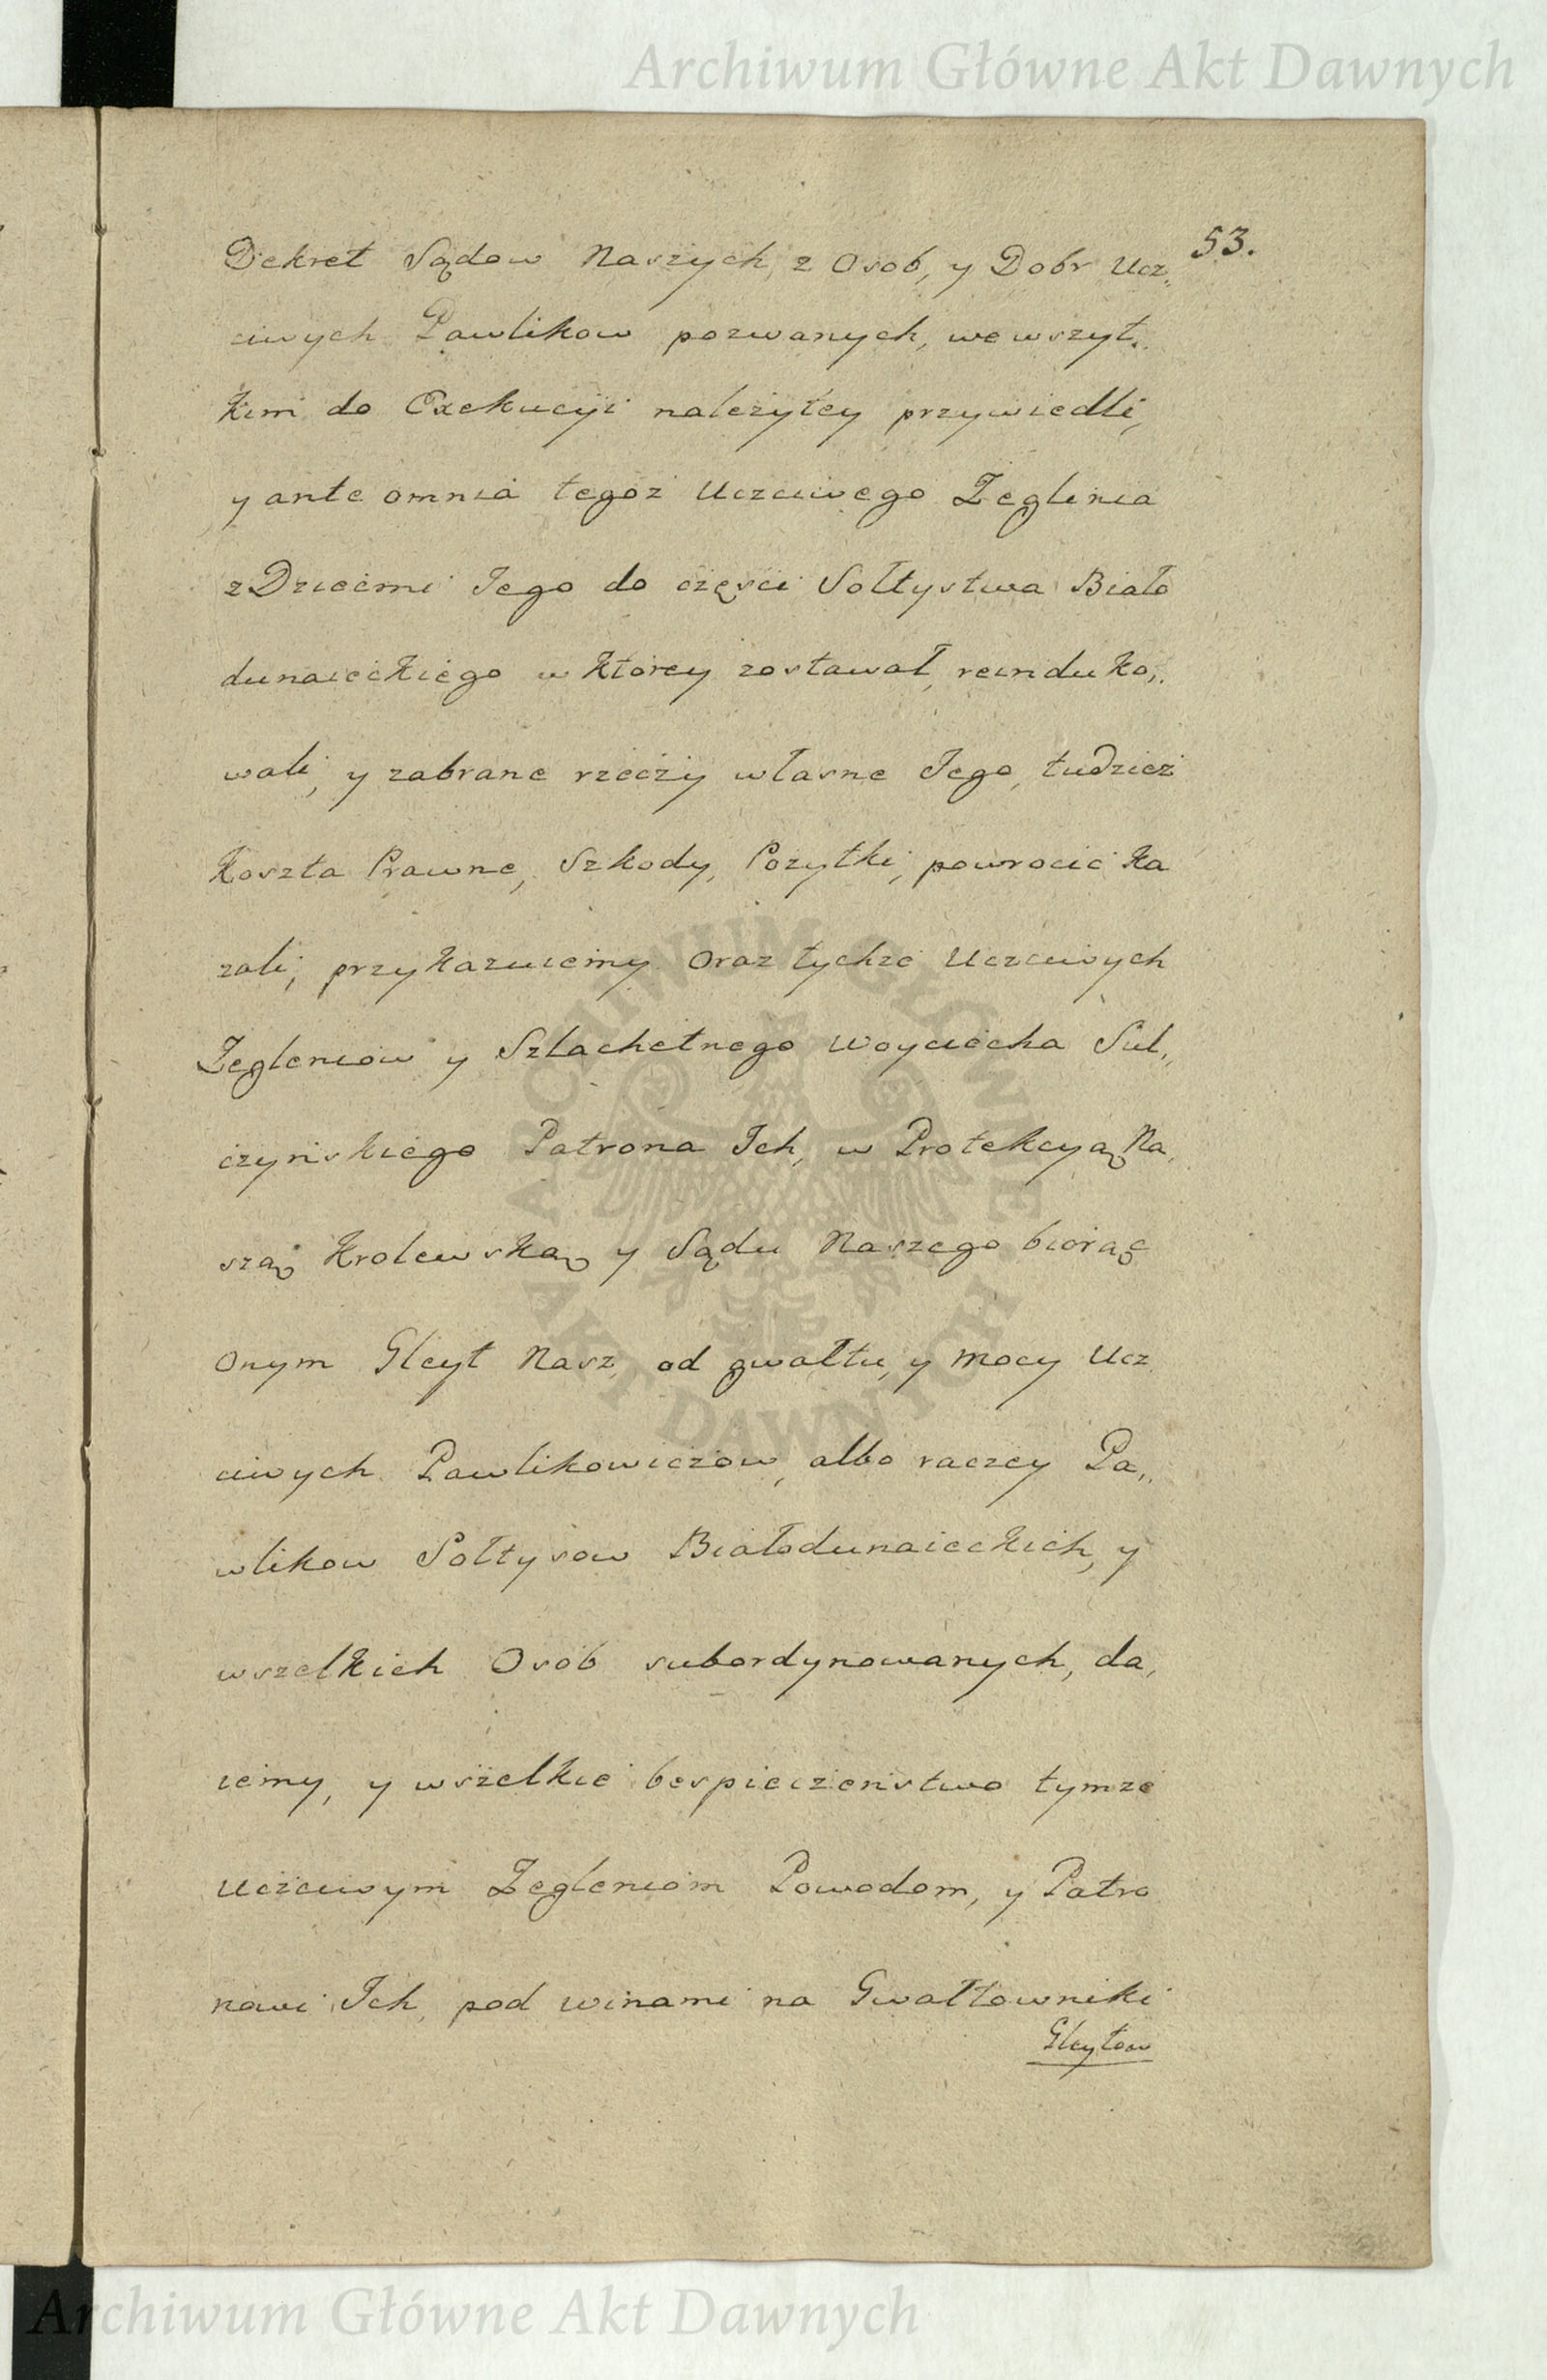 Archiwum Główne Akt Dawnych
53.
Dekret Sądow Naszych, z Osob, y Dobr Ucz,,
ciwych Pawlikow pozwanych, we wszyt,,
kim do Exekucyi należytey przywiedli,
y ante omnia tegoż Uczciwego Zeglenia
z Dziećmi Jego do części Sołtystwa Biało
dunaieckiego w ktorey zostawał, reinduko,,
wali, y zabrane rzeczy własne Jego, tudzież
Koszta Prawne, Szkody, Pożytki, powrocić ka
zali, przykazuiemy. Oraz tychże Uczciwych
Zegleniow y Szlachetnego Woyciecha Sul,,
czyńskiego Patrona Ich, w Protekcyą Na,
szą Krolewską y Sądu Naszego biorąc
Onym Gleyt Nasz, od gwałtu, y mocy Ucz
ciwych Pawlikowiczow, albo raczey Pa,,
wlikow Sołtysow Białodunaieckich, y
wszelkich Osób subordynowanych, da,
iemy, y wszelkie bespieczeństwo tymże
Uczciwym Zegleniom Powodom, y Patro
nowi Ich, pod winami na Gwałtowniki
Gleytow
ARCHIWUM GŁÓWNE AKT DAWNYCH
Archiwum Główne Akt Dawnych